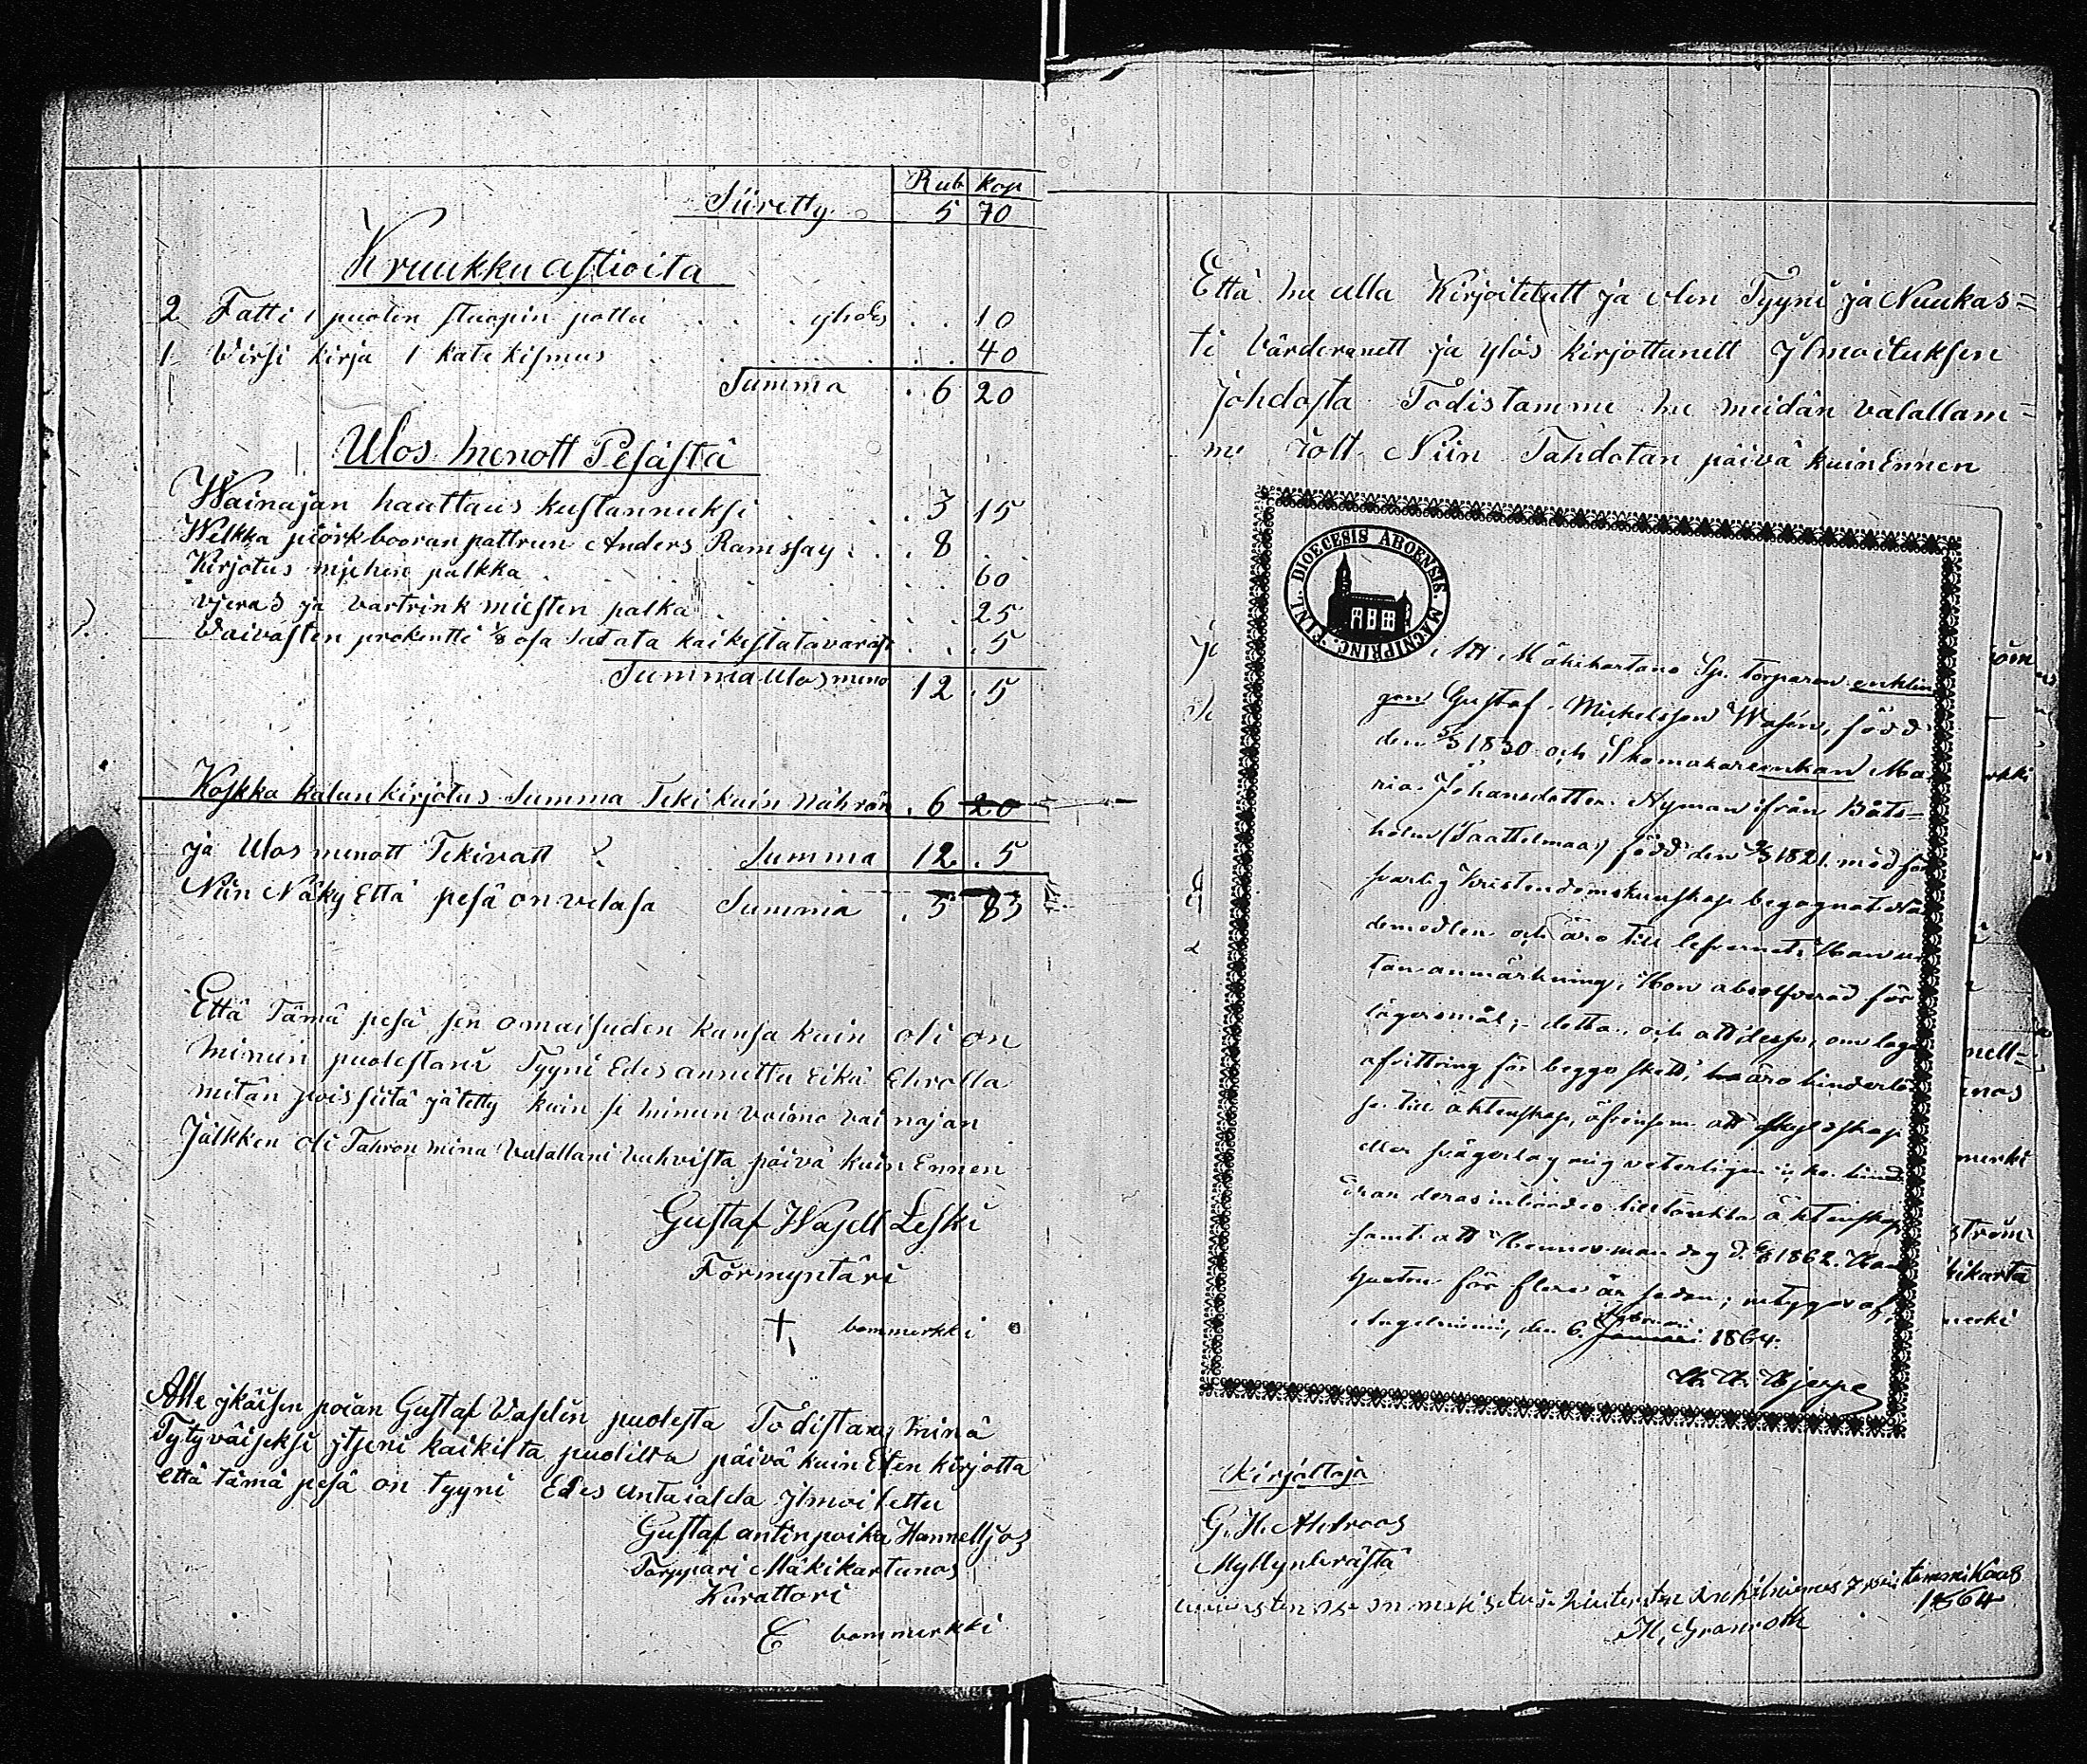 Rub kop
Siiretty 5 70
Kruukku astioita
2 Fatti 1 puolen stuopin pottu yhdes 10
1 Virsi kirja 1 katekismus 40
Summa 6 20
Ulos menott Pesästä
Wainajan hauttaus kustannuksi 3 15
Welkka piörkbooran pattrun Anders Ramssay 8
Kirjotus miehen palkka 60
vieras ja vartrink miesten palka 25
Vaivasten prosentti 1/8 osa sadata kaikesta tavarast 5
Summa Ulos meno 12 5
Koskka kalun kirjotus Summa Teki kuin nährän 6 20
ja Ulos menott Tekivatt Summa 12 5
Niin Näky Että pesä on velasa Summa 5 85
Että Tämä pesä sen omaisuden kansa kuin oli on
minun puolestani Tyyni Edes annettu eikä Ehrolla
mitän pois siitä jätetty kuin se minun vaimo vainajan
Jälkken oli Tahron minä valallani vahvista päivä kuin Ennen
Gustaf Waselt Leski
Förmyntäri
bommerkki
Alle ijkäisen poian Gustaf Vaselin puolesta Todistan minä
Tytyväiseksi itseni kaikilta puolilta päivä kuin Eten kirjotta
että tämä pesä on tyyni Edes Antaialda ylmoitettu
Gustaf antinpoika Hannelljos
Torppari Mäkikartanos
Kurattori
bommerkki
Että me ulla Kirjoitetutt ja olen Tyyni ja Nuukas=
ti Värderanett ja ylös kirjottanett ylmoituksen
Johdosta Todistamme me meidän valallam=
me Niin Tahdotan päivä kuin Ennen
FINL. DIOECESIS ABOENSIS. MAGNI PRINC.
Att Mäkikartano Sp. torparen enklin
gen Gustaf Mickelsson Wasén, född
den 5/3 1830 och Skomakareenkan Ma
ria Johansdotter Nyman ifrån Båts=
holm (Taattelmaa) född den 2/3 1821. med för
svarlig Kristendomskunskap begagnat Na
demedlen och äro till lefvernet: Han u
tan anmärkning, Hon absolverad för
lägersmål; detta, och att desse, om laga
afvittring för begge skett, äro hinderlö
se till äktenskap, äfvensom att skyldskap
eller svågerlag mig veterligen icke hind
rar deras inbördes tilltänkta äktenskap
samt att Hennes man dog d. 1862. Ha
hustru för flere år sedan; intygar af
Angelniemi, den 6 Februari 1864.
Kirjottaja
G. H. Ahlroos
Myllynkrästä
1864
H. Granroth